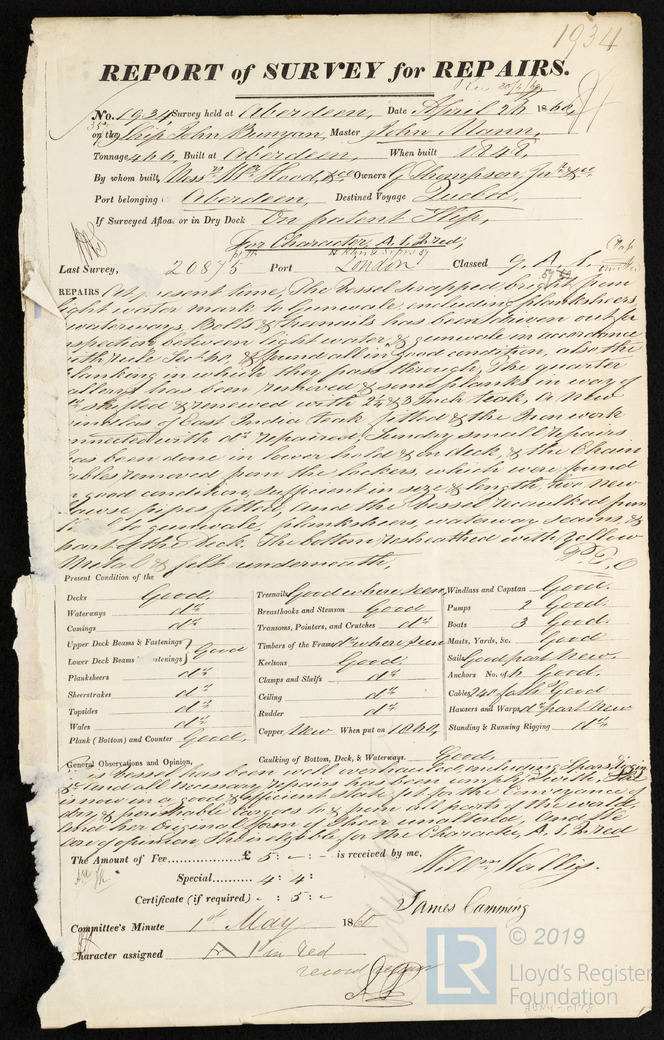 1934
REPORT of SURVEY for REPAIRS.
No. 1934 Survey held at Aberdeen, Date April 26 1860
on the Ship John Bunyan, Master John Mann,
Tonnage 466, Built at Aberdeen, When built 1848,
By whom built, Messrs Wr Hood, & Co Owners G Thompson, Junr & Co
Port belonging Aberdeen, Destined Voyage Quebec,
If Surveyed Afloat or in Dry Dock On patent Slip,
For Character A. 1. In red,
Last Survey, 20875 Port London Classed 9 A. 1.
REPAIRS At present time, The Vessel scrapped bright from
light water mark to Gunwale including planksheers
& waterways, Bolts & treenails has been driven out for
inspection between light water & gunwale in accordance
with rule & found all in good condition, also the
planking in which they pass through, The quarter
galleries has been removed & some planks in way of
do shifted & renewed with 2½ & 3 Inch teak, A New
Windlas of East India teak fitted & the Iron work
connected with do repaired, Sundry small repairs
has been done in lower hold & on deck, & the Chain
Cables removed from the lockers, which were found
in good condition, sufficient in size & length, two new
Hawse pipes fitted, and the Vessel recaulked from
to gunwale, planksheers, waterway seams, &
part of the Deck. The bottom resheathed with yellow
Metal & felt underneath, P. T. O
Present Condition of the
Decks Good.
Waterways do
Comings do
Upper Deck Beams & Fastenings
Lower Deck Beams & Fastenings Good
Planksheers do
Sheerstrakes do
Topsides do
Wales do
Plank (Bottom) and Counter Good.
Treenails Good where seen,
Breasthooks and Stemson Good
Transoms, Pointers, and Crutches do
Timbers of the Frame do where seen
Keelsons Good.
Clamps and Shelfs do
Ceiling do
Rudder do
Copper New When put on 1860,
Windlass and Capstan Good.
Pumps 2 Good.
Boats 3 Good.
Masts, Yards, &c. Good
Sails Good part New.
Anchors No. of 4 Good.
Cables 240 faths Good
Hausers and Warps do part New
Standing & Running Rigging do
General Observations and Opinion, Caulking of Bottom, Deck, & Waterways. Good.
This vessel has been well overhauled including Spars, Riggin
&c and all necessary repairs has been complied with, She
is now in a good & efficient state fit for the conveyance of
dry & perishable cargoes to & from all parts of the world,
And her Original form appear unaltered, and We
are of opinion, She is eligible for the Character, A. 1. In red
The Amount of Fee £ 5: - : - is received by me,
Special 4: 4:
Certificate (if required) - : 5: -
Willm Wallis.
James Cumming
Committee's Minute 1st May 1860
Character assigned A 1 in red
record repairs
LR
© 2019
Lloyd's Register
Foundation